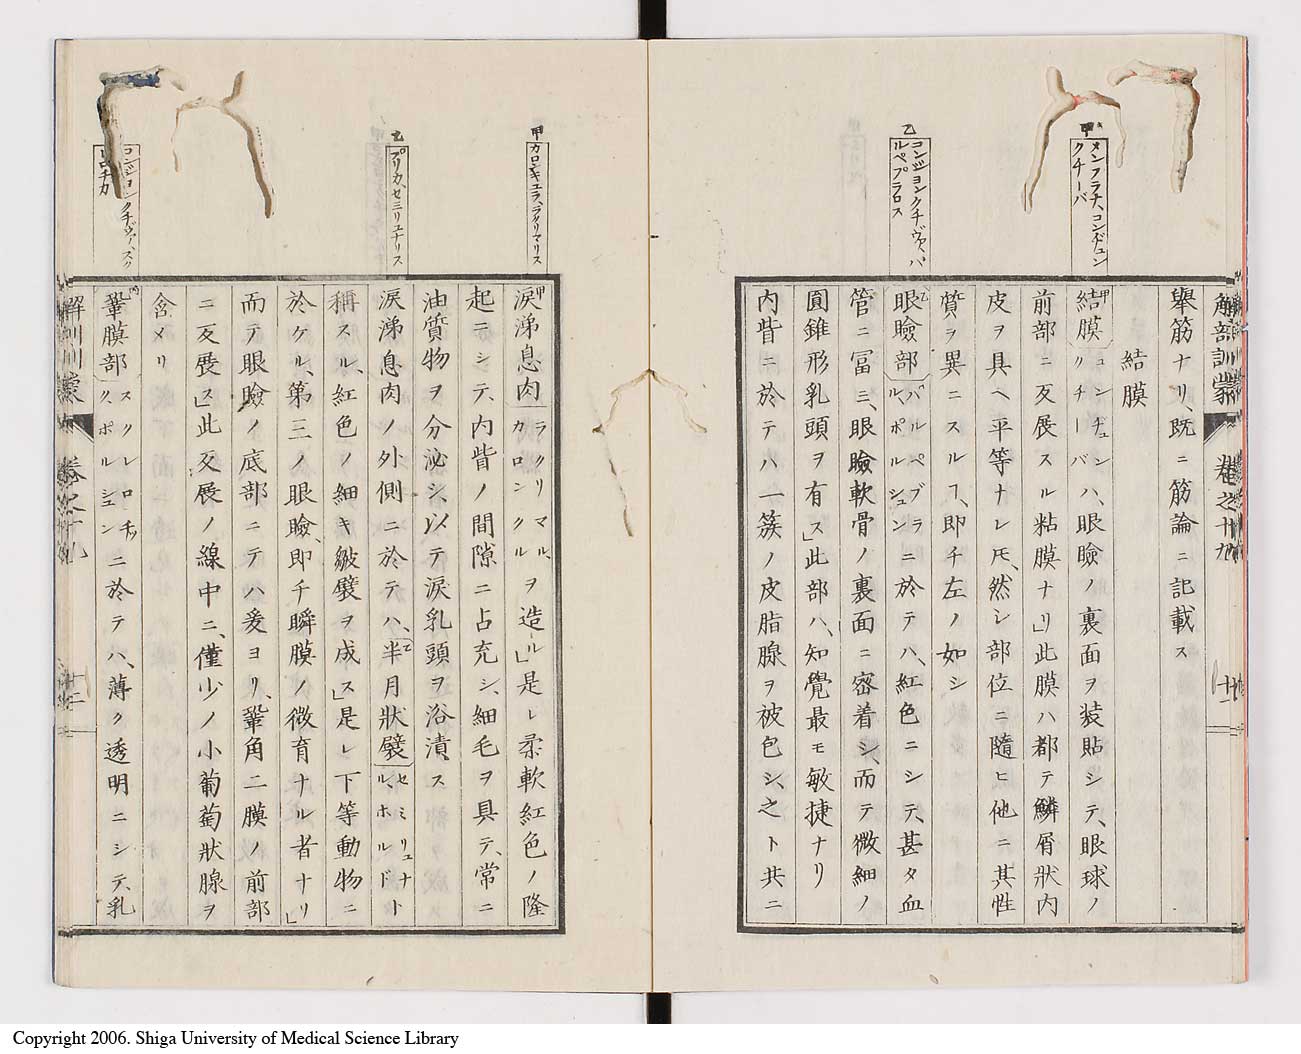 解剖訓蒙 卷之十九 十一
甲
メンフラナ、コンヂュン
クチーバ
乙
コンジョンクチヴァ、パ
ルペプラロス
擧筋ナリ、既ニ筋論ニ記載ス
結膜
甲結膜コンヂュンクチーバハ、眼瞼ノ裏面ヲ装貼シテ、眼球ノ
前部ニ反展スル粘膜ナリ」此膜ハ都テ鱗屑狀内
皮ヲ具ヘ平等ナレ𪜈、然レ部位ニ隨ヒ他ニ其性
質ヲ異ニスルヿ、即チ左ノ如シ
乙眼瞼部パルペブラルポルシュンニ於テハ、紅色ニシテ、甚タ血
管ニ冨ミ、眼瞼軟骨ノ裏面ニ密着シ、而テ微細ノ
圓錐形乳頭ヲ有ス」此部ハ、知覺最モ敏捷ナリ
内眥ニ於テハ一簇ノ皮脂腺ヲ被包シ、之ト共ニ
甲
カロンキュラ、ラクリマリス
乙
プリカ、セミリュナリス
コンジョンクチヴァ、スク
ロチカ
甲涙涕息肉ラクリマル、カロンクルヲ造ル」是レ柔軟紅色ノ隆
起ニシテ、内眥ノ間隙ニ占充シ、細毛ヲ具テ、常ニ
油質物ヲ分泌シ、以テ涙乳頭ヲ浴漬ス
涙涕息肉ノ外側ニ於テハ、乙半月狀襞セミリュナル、ホルドト
稱スル、紅色ノ細キ皺襞ヲ成ス」是レ下等動物ニ
於ケル、第三ノ眼瞼、即チ瞬膜ノ微育ナル者ナリ」
而テ眼瞼ノ底部ニテハ爰ヨリ、鞏角二膜ノ前部
ニ反展ス」此反展ノ線中ニ、僅少ノ小葡萄狀腺ヲ
含メリ
丙鞏膜部スクレロチック、ポルシュンニ於テハ、薄ク透明ニシテ、乳
解剖訓蒙 卷之十九 十二